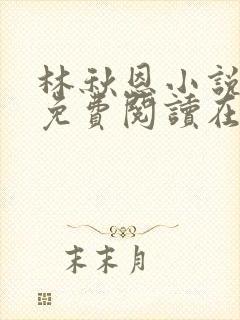 林秋恩小說
免費閱讀在
末末月